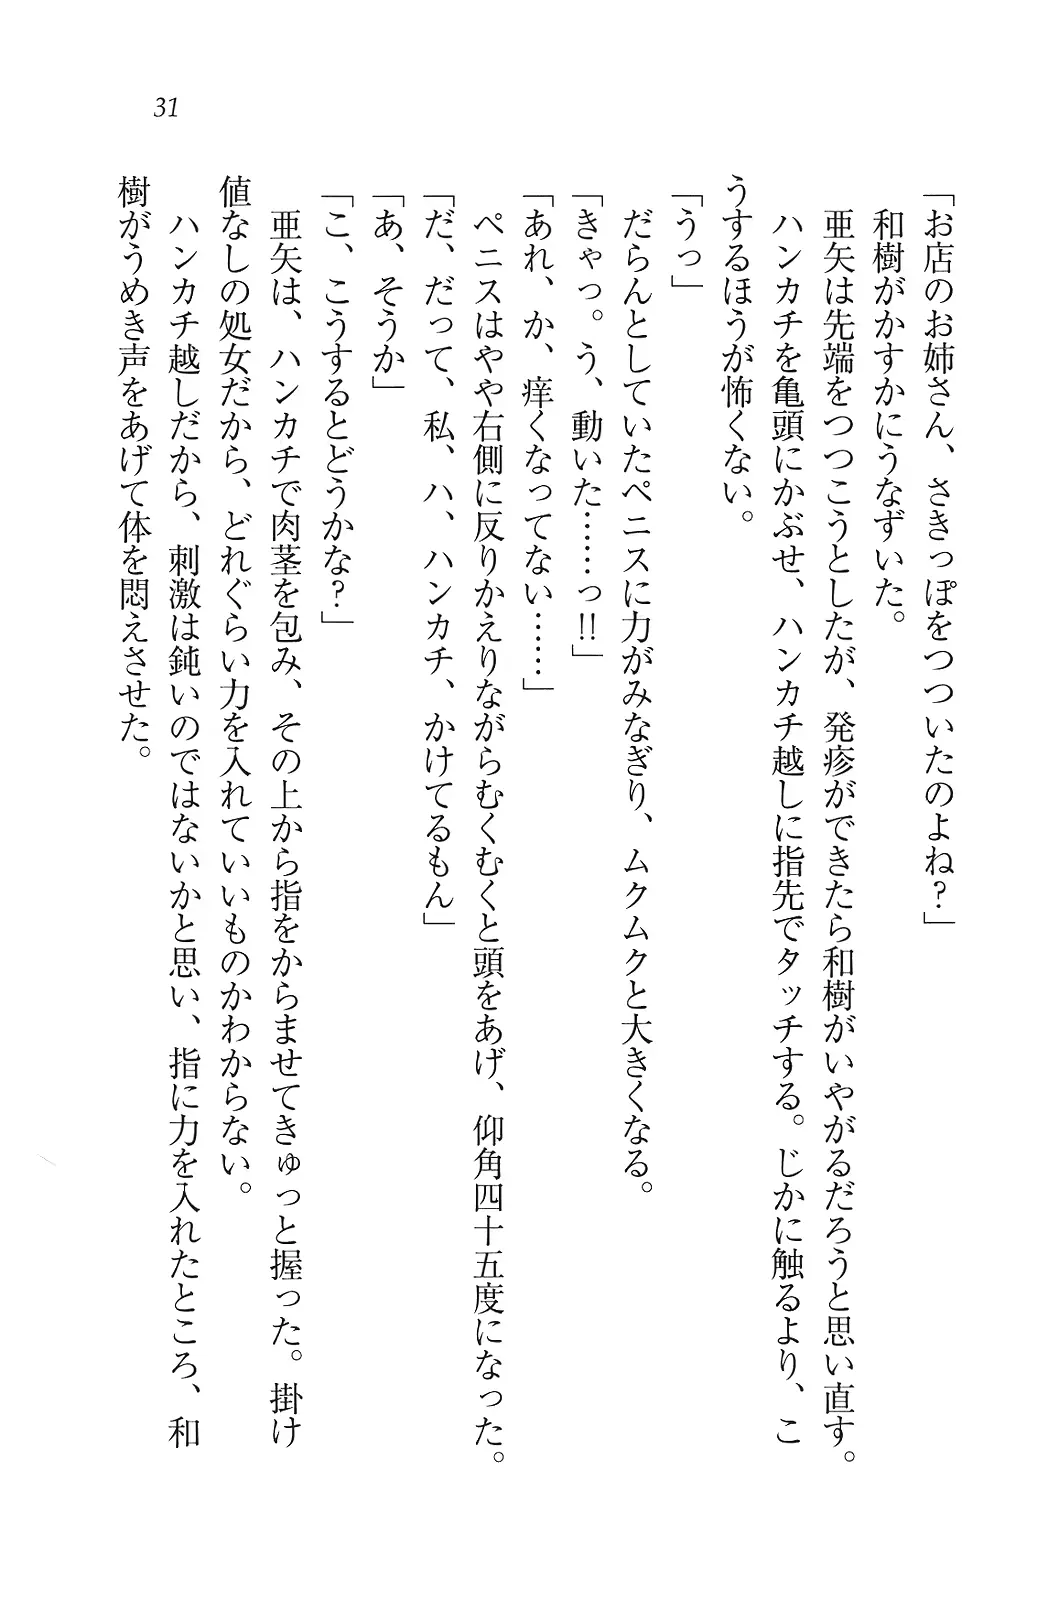 31
「お店のお姉さん、さきっぽをつついたのよね?」
和樹がかすかにうなずいた。
亜矢は先端をつつこうとしたが、発疹ができたら和樹がいやがるだろうと思い直す。
ハンカチを亀頭にかぶせ、ハンカチ越しに指先でタッチする。じかに触るより、こ
うするほうが怖くない。
「うっ」
だらんとしていたペニスに力がみなぎり、ムクムクと大きくなる。
「きゃっ。う、動いた……っ!!」
「あれ、か、痒くなってない……」
ペニスはやや右側に反りかえりながらむくむくと頭をあげ、仰角四十五度になった。
「だ、だって、私、ハ、ハンカチ、かけてるもん」
「あ、そうか」
「こ、こうするとどうかな?」
亜矢は、ハンカチで肉茎を包み、その上から指をからませてきゅっと握った。掛け
値なしの処女だから、どれぐらい力を入れていいものかわからない。
ハンカチ越しだから、刺激は鈍いのではないかと思い、指に力を入れたところ、和
樹がうめき声をあげて体を悶えさせた。